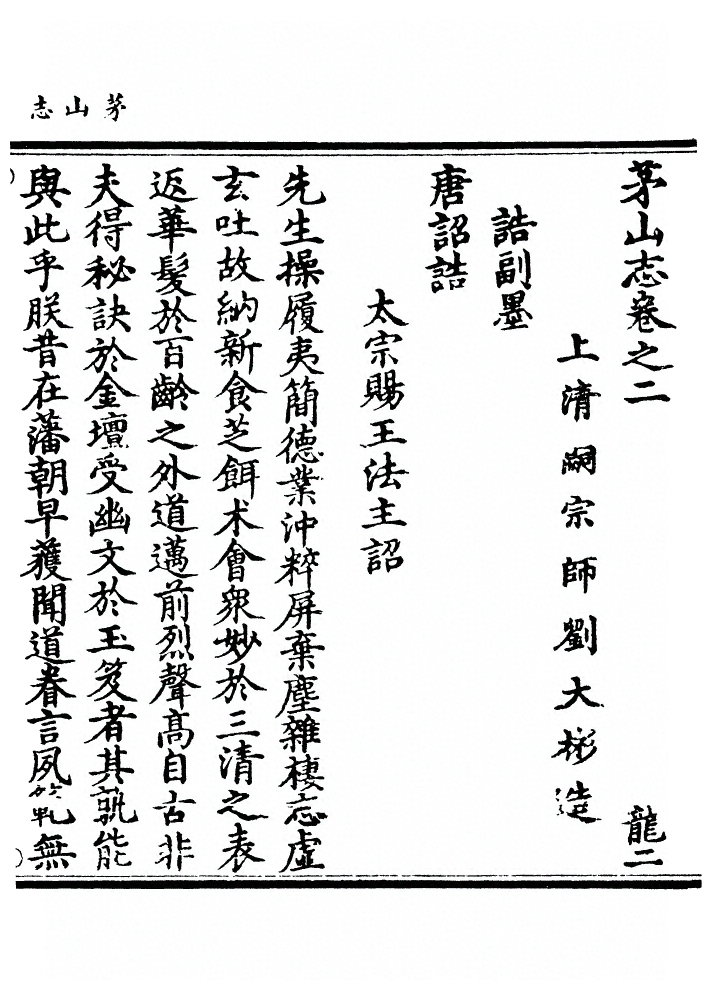 茅山志
茅山志卷之二 龍二
上清嗣宗師劉大彬造
誥副墨
唐詔誥
太宗賜王法主詔
先生操履夷簡德業沖粹屏棄塵雜棲志虛
玄吐故納新食芝餌术會衆妙於三清之表
返華髮於百齡之外道邁前烈聲高自古非
夫得秘訣於金壇受幽文於玉笈者其孰能
與此乎朕昔在藩朝早獲聞道眷言夙無